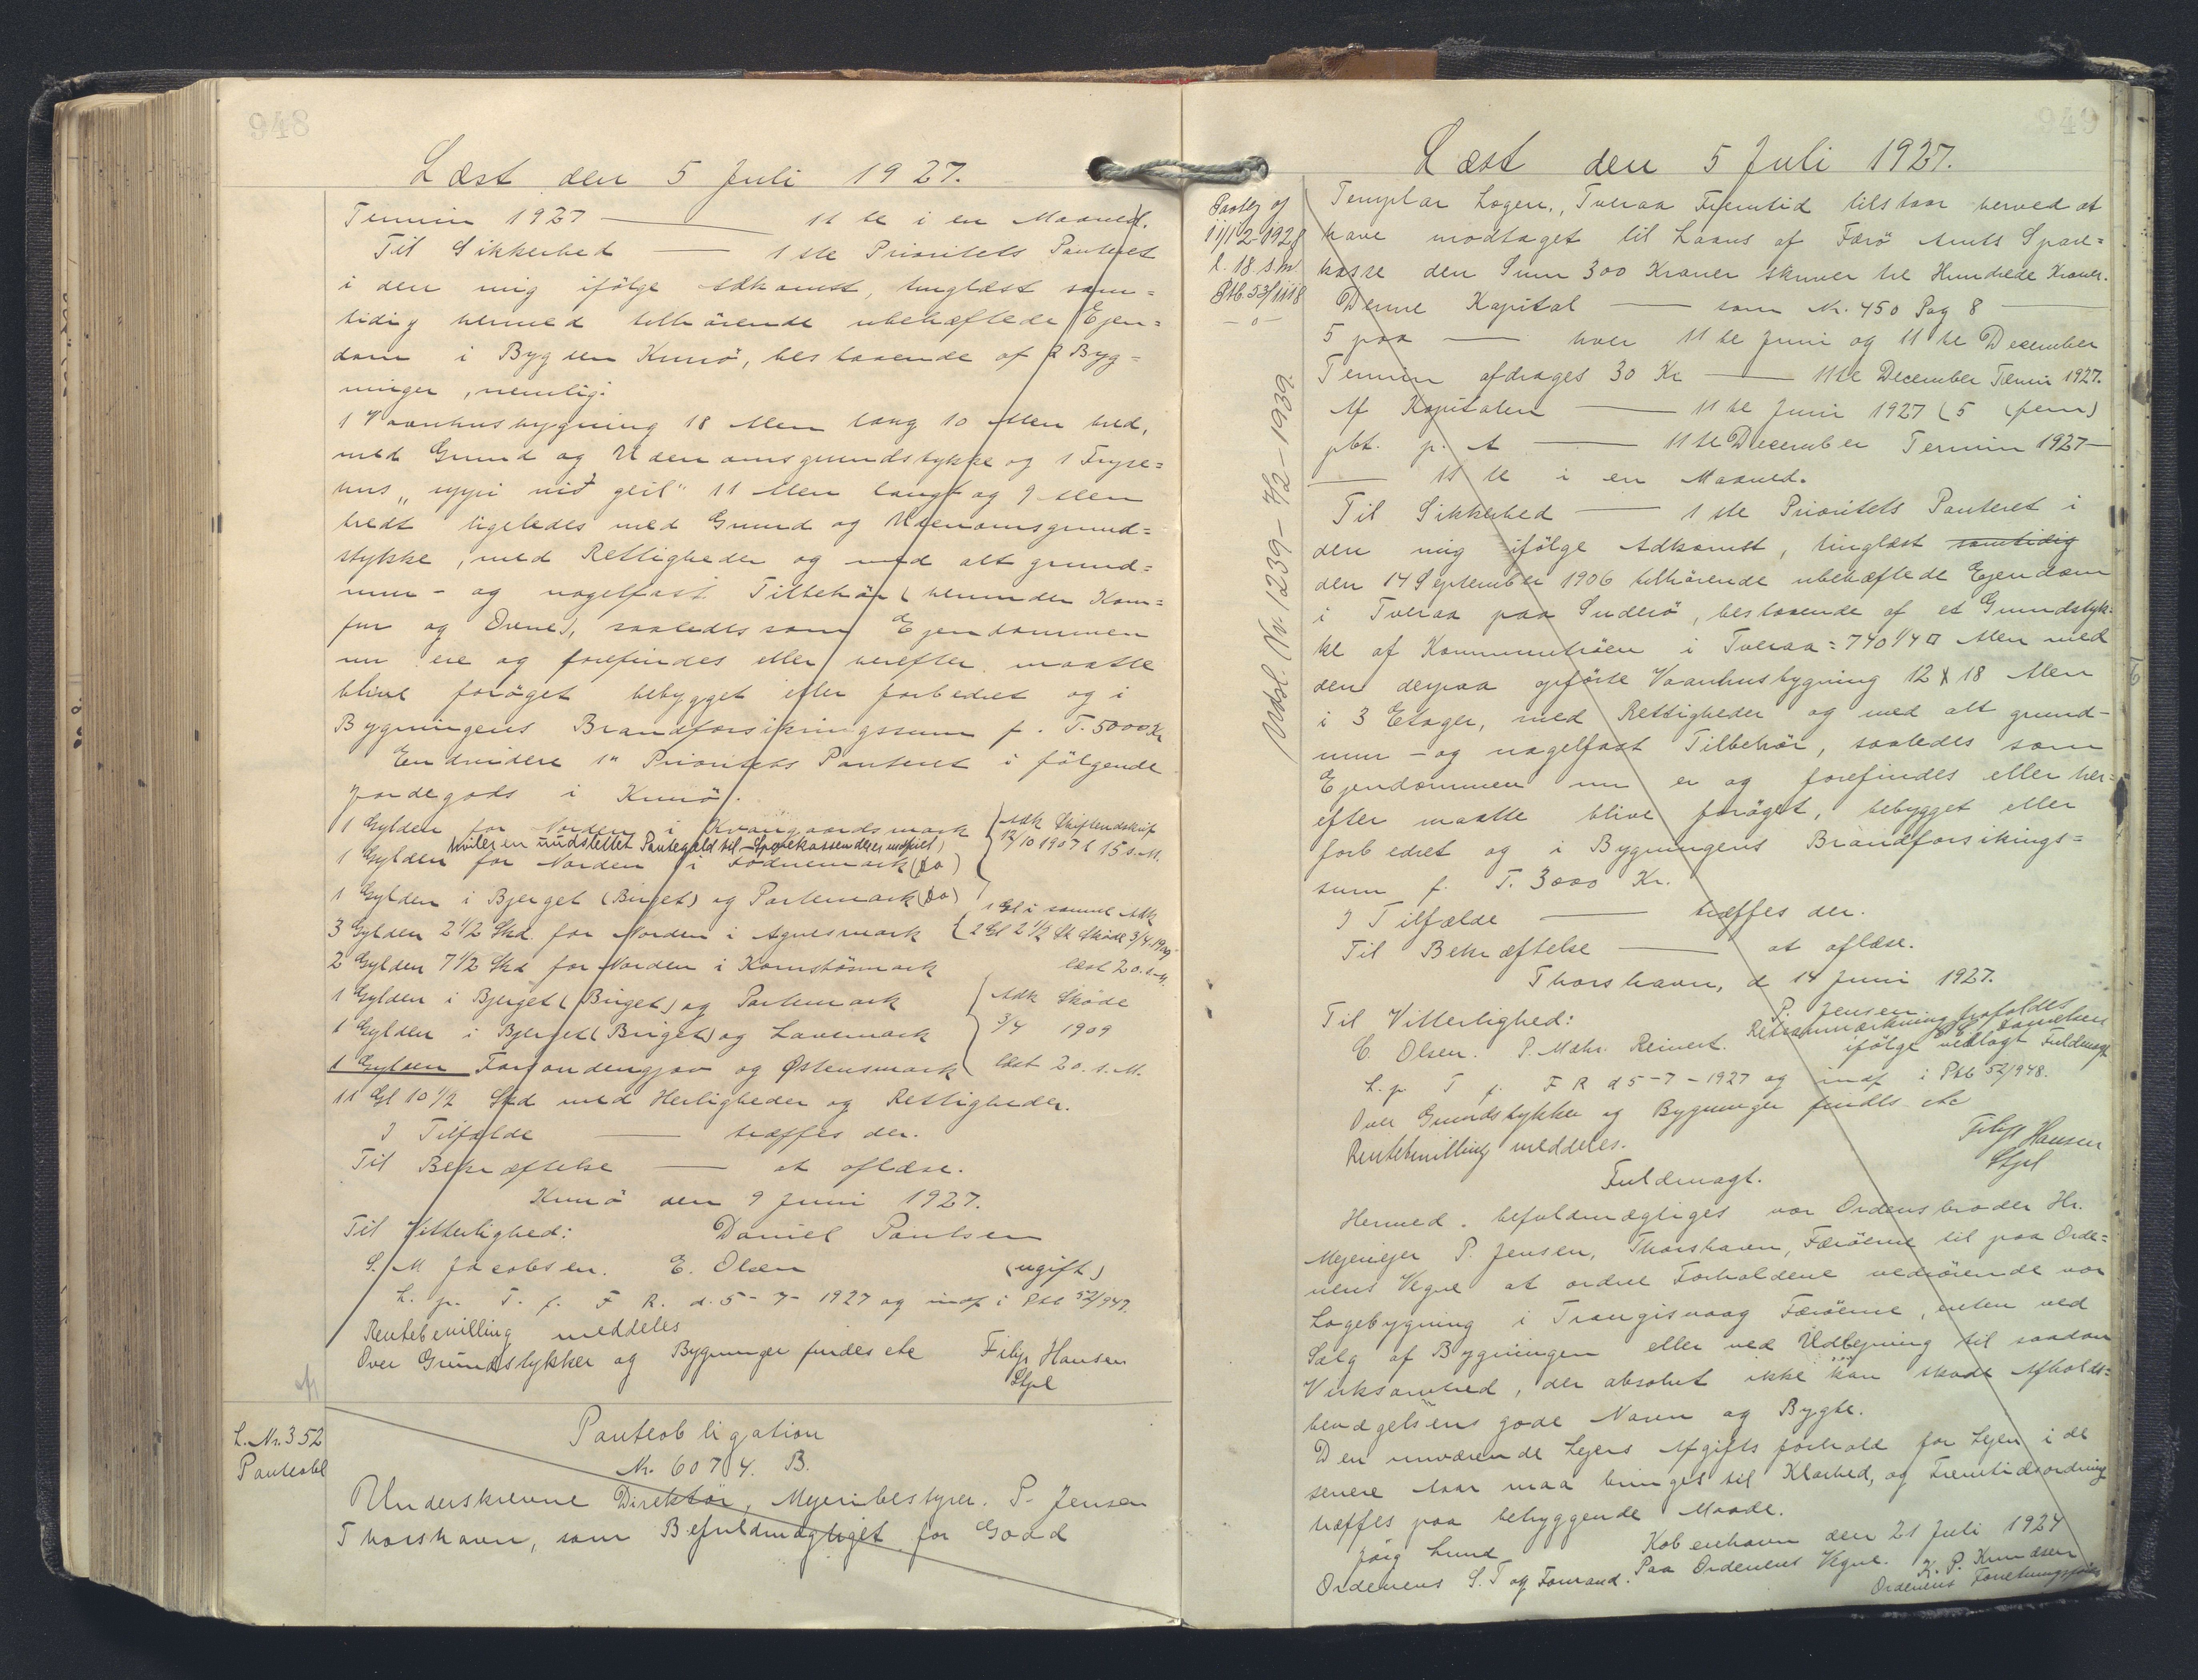 948
Læst den 5 Juli 1927.
Termin 1927 — 11 te i en Maaned.
Til Sikkerhed — 1 ste Prioritets Panteret
i den mig ifölge Adkomst, tinglæst sam=
tidig hermed tilhörende ubehæftede Ejen=
dom i Bygden Kunö, bestaaende af 2 Byg=
ninger, nemlig:
1 Vaanhusbygning 18 Alen lang 10 Alen bred,
med Grund og Udenomsgrundstykke og 1 Fryse=
hus „ uppi við geil" 11 Alen langt og 9 Alen
bredt ligeledes med Grund og Udenomsgrund=
stykke, med Rettigheder og med alt grund=
mur - og nagelfast Tilbehör (herunder Kom=
fur og Ovne), saaledes som Ejendommen
nu ere og forefindes eller herefter maatte
blive foröget bebygget eller forbedret og i
Bygningens Brandforsikringssum f. T. 5000 Kr
Endvidere 1" Prioritets Panteret i fölgende
Jordegods i Kunö.
1 Gylden for Norden i Kvangaardsmark
Adk Skiftendskrift
12/10 1907 l 15. s. M.
1 Gylden for Norden i (do)
1 Gylden i Bjerget (Birget) og Partemark (do)
1 Gl i samme Adk
3 Gylden 2 1/2 Skd for Norden i Agnesmark
2 Gl 2 1/2 Sk Sköde 3/4 1909
2 Gylden 7 1/2 Skd for Norden i Kornstösmark
læst 20. s. M.
1 Gylden i Bjerget (Birget) og Partemark
Adk Sköde
1 Gylden i Bjerget (Birget) og Lavemark
3/4 1909
1 Gylden og Østensmark
læst 20. s. M.
11 Gl 10 1/2 Skd med Herligheder og Rettigheder.
I Tilfælde — træffes der.
Til Bekræftelse — at aflæse.
Kunö den 9 Juni 1927.
Til Vitterlighed: Daniel Poulsen
S. M Jacobsen. E. Olsen (ugift)
L. p. T. f. F R. d. 5 - 7 - 1927 og indf i Ptb 52/947.
Rentebevilling meddeles
Over Grundstykker og Bygninger findes etc Filip Hansen
Stpl
L. Nr. 352
Panteobl
Panteobligation
Nr. 6074. B.
Underskrevne Direktör, Mejeribestyrer. P. Jensen
Thorshavn, som Befuldmægtiget for Good
949
Læst den 5 Juli 1927.
11/12-1928
l. 18. s. M.
Ptb. 53/1118
— o —
Udsl. Nr. 1239 - 7/2 - 1939.
Templar Logen, Tveraa Fremtid tilstaar herved at
have modtaget til Laans af Færö Amts Spare=
kasse den Sum 300 Kroner skriver tre Hundrede Kroner.
Denne Kapital — som Nr. 450 Pag 8
5 paa — hver 11 te Juni og 11 te December
Termin afdrages 30 Kr — 11te December Termin 1927.
Af Kapitalen — 11 te Juni 1927 (5 (fem)
pbt. p. A — 11 te December Termin 1927 —
— 11 te i en Maaned.
Til Sikkerhed — 1 ste Prioritets Panteret i
den mig ifölge Adkomst, tinglæst samtidig
den 14 September 1906 tilhörende ubehæftede Ejendom
i Tveraa paa Suderö, bestaaende af et Grundstyk=
ke af Kommunetröen i Tveraa = 740 1/4 □ Alen med
den derpaa opförte Vaanhusbygning 12 x 18 Alen
i 3 Etager, med Rettigheder og med alt grund-
mur - og nagelfast Tilbehör, saaledes som
Ejendommen nu er og forefindes eller her=
efter maatte blive foröget, bebygget eller
forbedret og i Bygningens Brandforsikrings=
sum f. T. 3000 Kr.
I Tilfælde — træffes der.
Til Bekræftelse — at aflæse.
Thorshavn, d 14 Juni 1927.
Til Vitterlighed: P. Jensen
C. Olsen. P. Mohr. Reinert.
ifölge vedlagt Fuldmagt
L. p. T f. F R d 5 - 7 - 1927 og indf i Ptb 52/948.
Over Grundstykker og Bygninger findes etc
Rentebevilling meddeles.
Filip Hansen
Stpl
Fuldmagt.
Hermed befuldmægtiges vor Ordensbroder Hr.
Mejeriejer P. Jensen, Thorshavn, Færöerne til paa Orde=
nens Vegne at ordne Forholdene vedrörende vor
Logebygning i Trangisvaag Færöerne, enten ved
Salg af Bygningen eller ved Udlejning til saadan
Virksomhed, der absolut ikke kan skade Afholds=
bevægelsens gode Navn og Rygte.
Den nuværende Lejers Afgifts forhold for Lejen i de
senere Aar maa bringes til Klarhed, og Fremtidsordning
træffes paa betryggende Maade.
Köbenhavn den 21 Juli 1924
Paa Ordenens Vegne.
Lund
K. P. Knudsen
Ordenens S. T og Formand.
Ordenens Forretningsförer